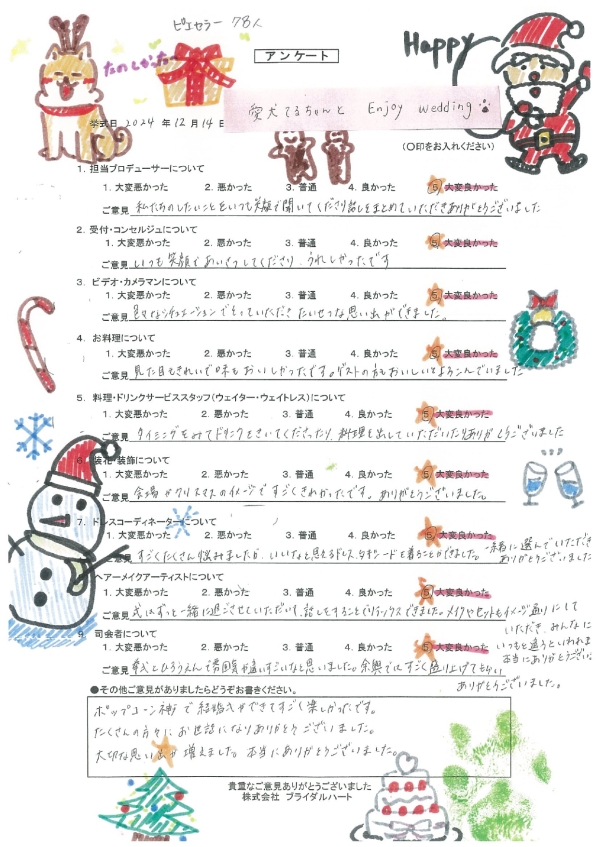 ピエセラー 78人
アンケート
Happy
たのしかった
愛犬てるちゃんと Enjoy wedding
挙式日 2024 年 12 月 14 日
(○印をお入れください)
1. 担当プロデューサーについて
1. 大変悪かった 2. 悪かった 3. 普通 4. 良かった 5. 大変良かった
ご意見 私たちのしたいことをいつも笑顔で聞いてくださり話しをまとめていただきありがとうございました
2. 受付・コンセルジュについて
1. 大変悪かった 2. 悪かった 3. 普通 4. 良かった 5. 大変良かった
ご意見 いつも笑顔であいさつしてくださり、うれしかったです
3. ビデオ・カメラマンについて
1. 大変悪かった 2. 悪かった 3. 普通 4. 良かった 5. 大変良かった
ご意見 色々なシチュエーションでとっていただき たいせつな思い出ができました。
4. お料理について
1. 大変悪かった 2. 悪かった 3. 普通 4. 良かった 5. 大変良かった
ご意見 見た目もきれいで味もおいしかったです。ゲストの方もおいしいとよろこんでいました
5. 料理・ドリンクサービススタッフ(ウェイター・ウェイトレス)について
1. 大変悪かった 2. 悪かった 3. 普通 4. 良かった 5. 大変良かった
ご意見 タイミングをみてドリンクをきいてくださったり、料理を出していただいたりありがとうございました
6. 装花・装飾について
1. 大変悪かった 2. 悪かった 3. 普通 4. 良かった 5. 大変良かった
ご意見 会場がクリスマスのイメージですごくきれかったです。ありがとうございました。
7. ドレスコーディネーターについて
1. 大変悪かった 2. 悪かった 3. 普通 4. 良かった 5. 大変良かった
ご意見 すごくたくさん悩みましたが、いいなぁと思えるドレス、タキシードを着ることができました。一緒に選んでいただき
ありがとうございました
ヘアーメイクアーティストについて
1. 大変悪かった 2. 悪かった 3. 普通 4. 良かった 5. 大変良かった
ご意見 式はずっと一緒に過ごさせていただいて、話しをすることでリラックスできました。メイクやセットもイメージ通りにして
いただき、みんなに
いつもと違うといわれました
本当にありがとうござい
9. 司会者について
1. 大変悪かった 2. 悪かった 3. 普通 4. 良かった 5. 大変良かった
ご意見 挙式とひろうえんで雰囲気が違いすごいなと思いました。余興ではすごく盛り上げてもらい
ありがとうございました。
●その他ご意見がありましたらどうぞお書きください。
ポップコーン で結婚式ができてすごく楽しかったです。
たくさんの方々にお世話になりありがとうございました。
大切な思い出が増えました。本当にありがとうございました。
貴重なご意見ありがとうございました
株式会社 ブライダルハート